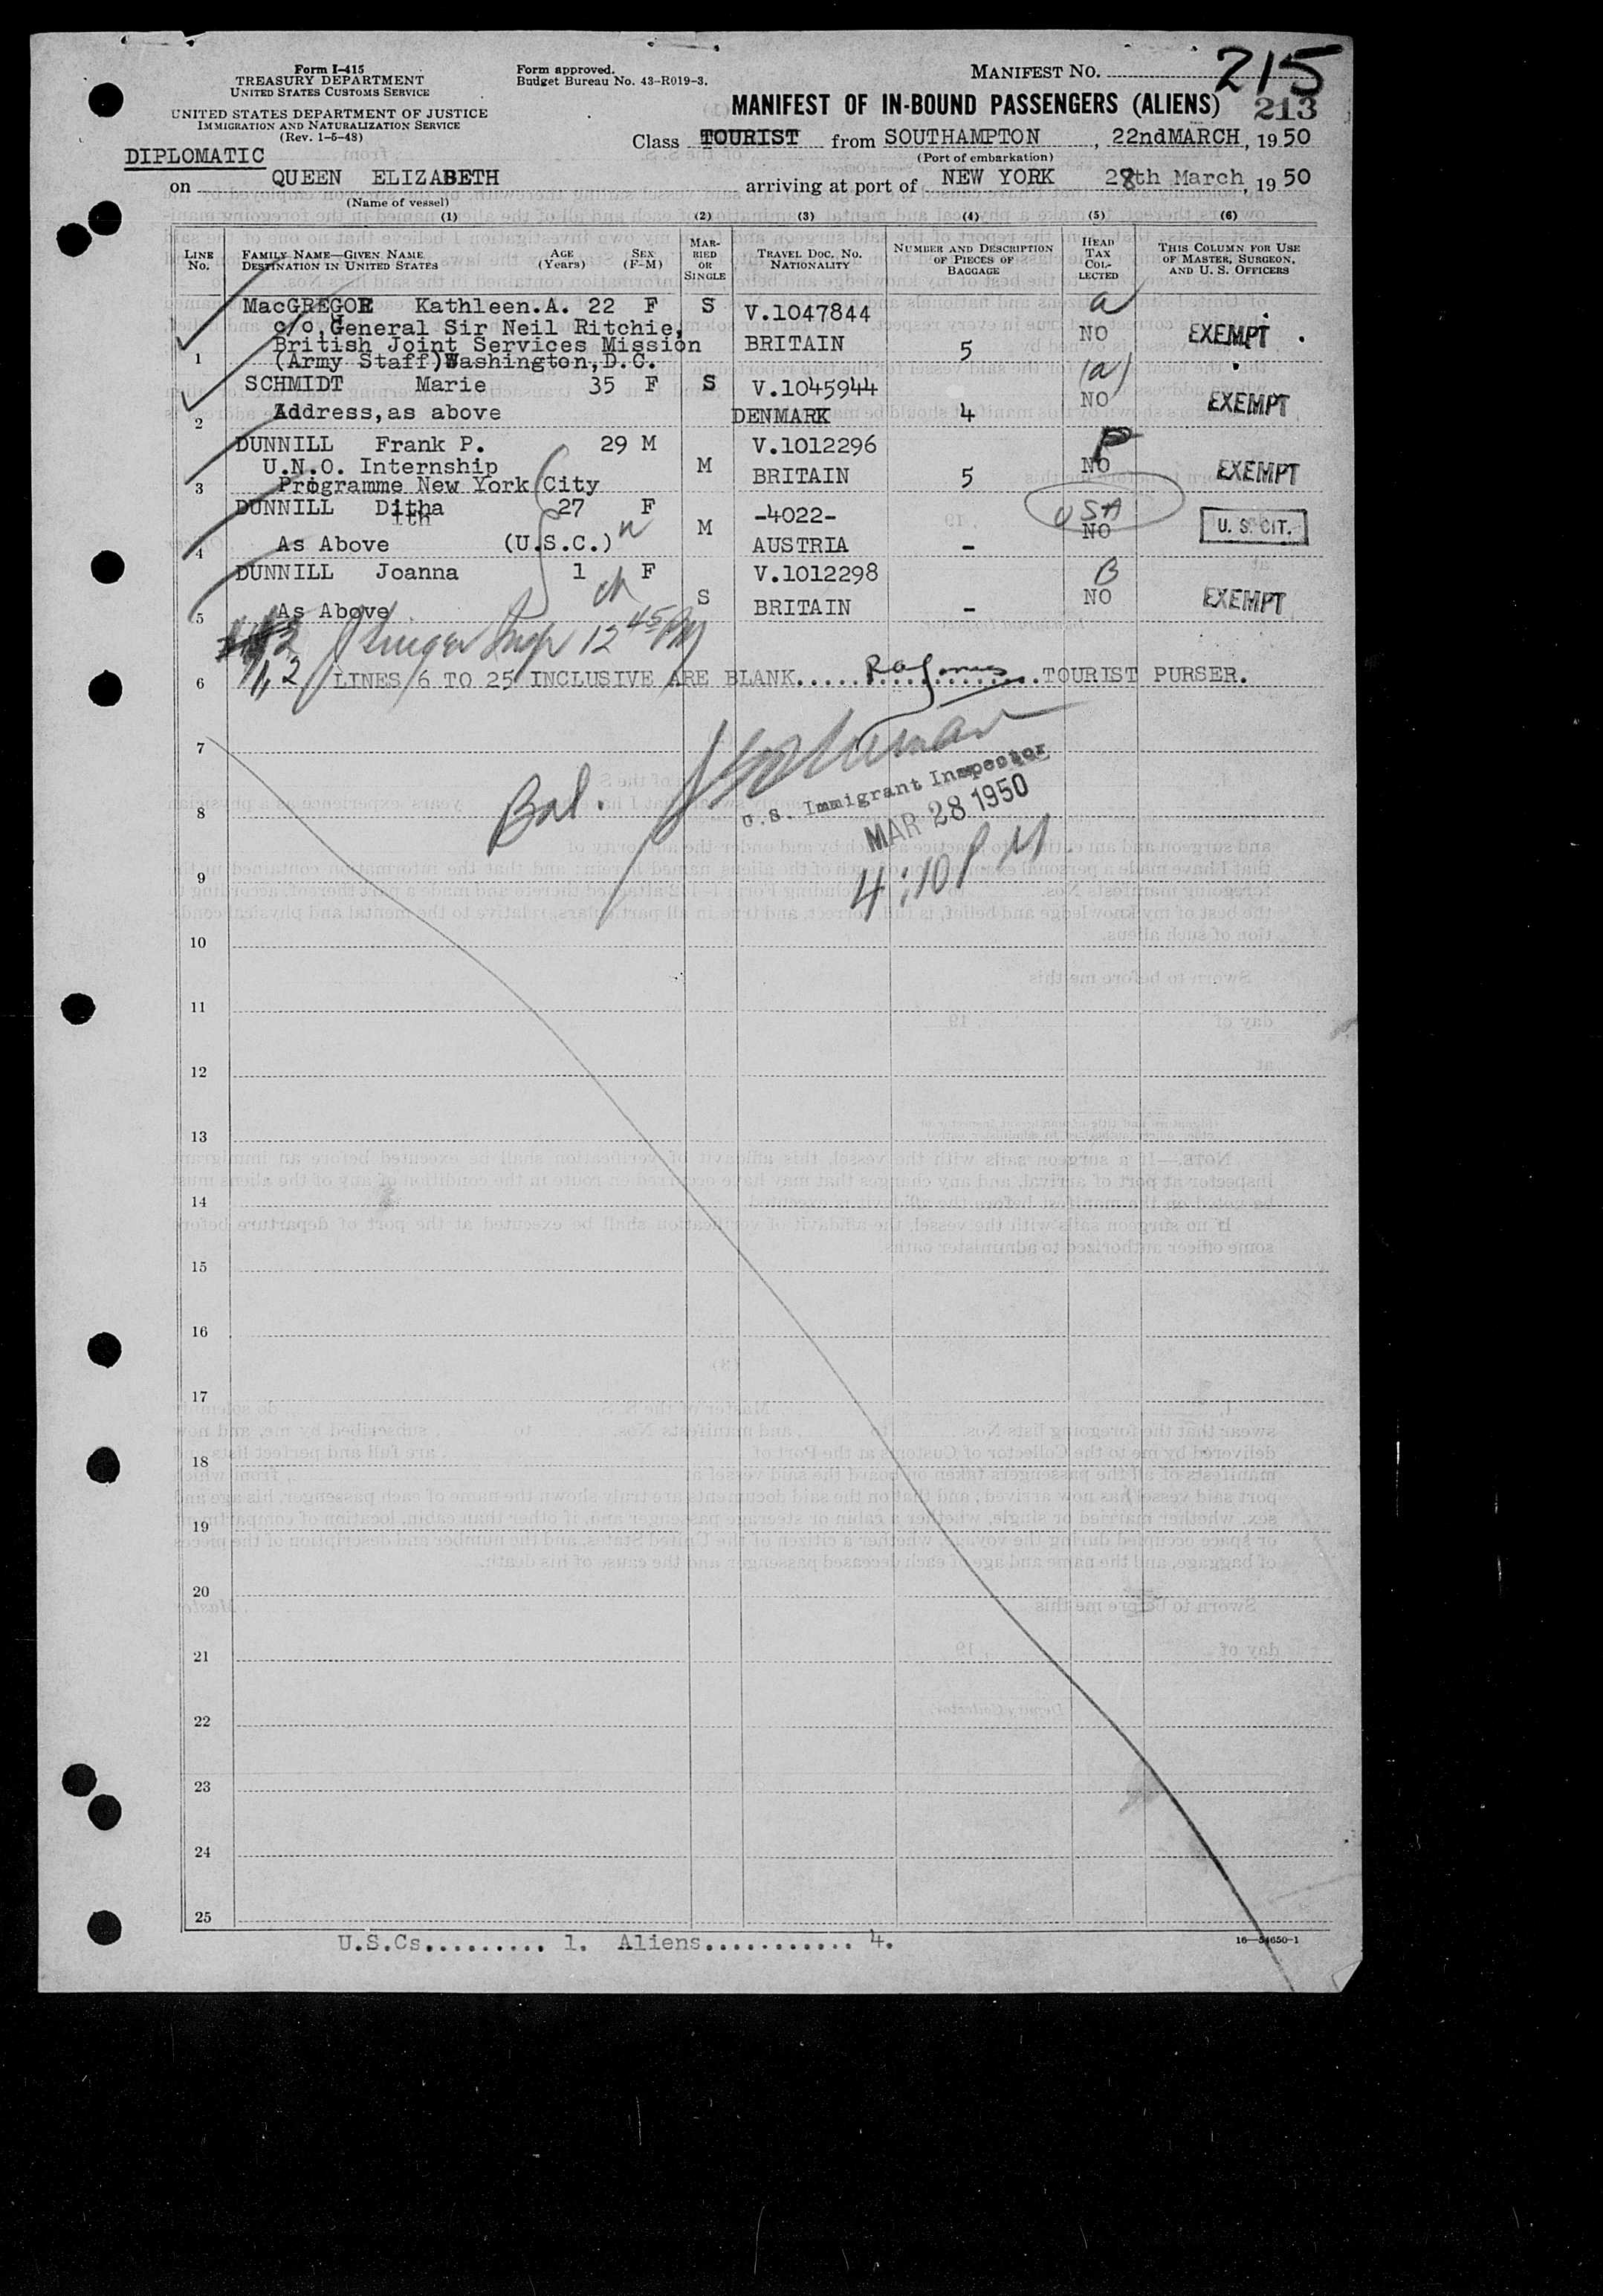 Form I-415
TREASURY DEPARTMENT
UNITED STATES CUSTOMS SERVICE
UNITED STATES DEPARTMENT OF JUSTICE
IMMIGRATION AND NATURALIZATION SERVICE
(Rev. 1-5-48)
Form approved.
Budget Bureau No. 43-R019-3.
MANIFEST NO. 215
MANIFEST OF IN-BOUND PASSENGERS (ALIENS) 213
Class TOURIST from SOUTHAMPTON, 22nd MARCH, 1950
(Port of embarkation)
DIPLOMATIC
on QUEEN ELIZABETH arriving at port of NEW YORK 28th March, 1950
(Name of vessel)
(1) (2) (3) (4) (5) (6)
LINE No. FAMILY NAME—GIVEN NAME DESTINATION IN UNITED STATES AGE (Years) SEX (F-M) MARRIED OR SINGLE TRAVEL DOC. NO. NATIONALITY NUMBER AND DESCRIPTION OF PIECES OF BAGGAGE HEAD TAX COLLECTED THIS COLUMN FOR USE OF MASTER, SURGEON, AND U. S. OFFICERS
MacGREGOR Kathleen.A. 22 F S V.1047844 a
c/o, General Sir Neil Ritchie, NO EXEMPT
British Joint Services Mission BRITAIN 5
1 (Army Staff) Washington, D.C.
SCHMIDT Marie 35 F S V.1045944 (a)
2 Address, as above DENMARK 4 NO EXEMPT
DUNNILL Frank P. 29 M V.1012296
U.N.O. Internship M NO EXEMPT
3 Programme New York City BRITAIN 5
DUNNILL Ditha 27 F -4022- USA
ith M NO U. S. CIT.
4 As Above (U.S.C.) AUSTRIA -
DUNNILL Joanna 1 F V.1012298 B
S NO EXEMPT
5 As Above BRITAIN -
Insp 12 45 PM
1, 2
6 LINES 6 TO 25 INCLUSIVE ARE BLANK..................TOURIST PURSER.
7
Bal.
U.S. Immigrant Inspector
8
MAR 28 1950
9
4:10 PM
10
11
12
13
14
15
16
17
18
19
20
21
22
23
24
25
U.S.Cs......... 1. Aliens............ 4.
16—54650-1